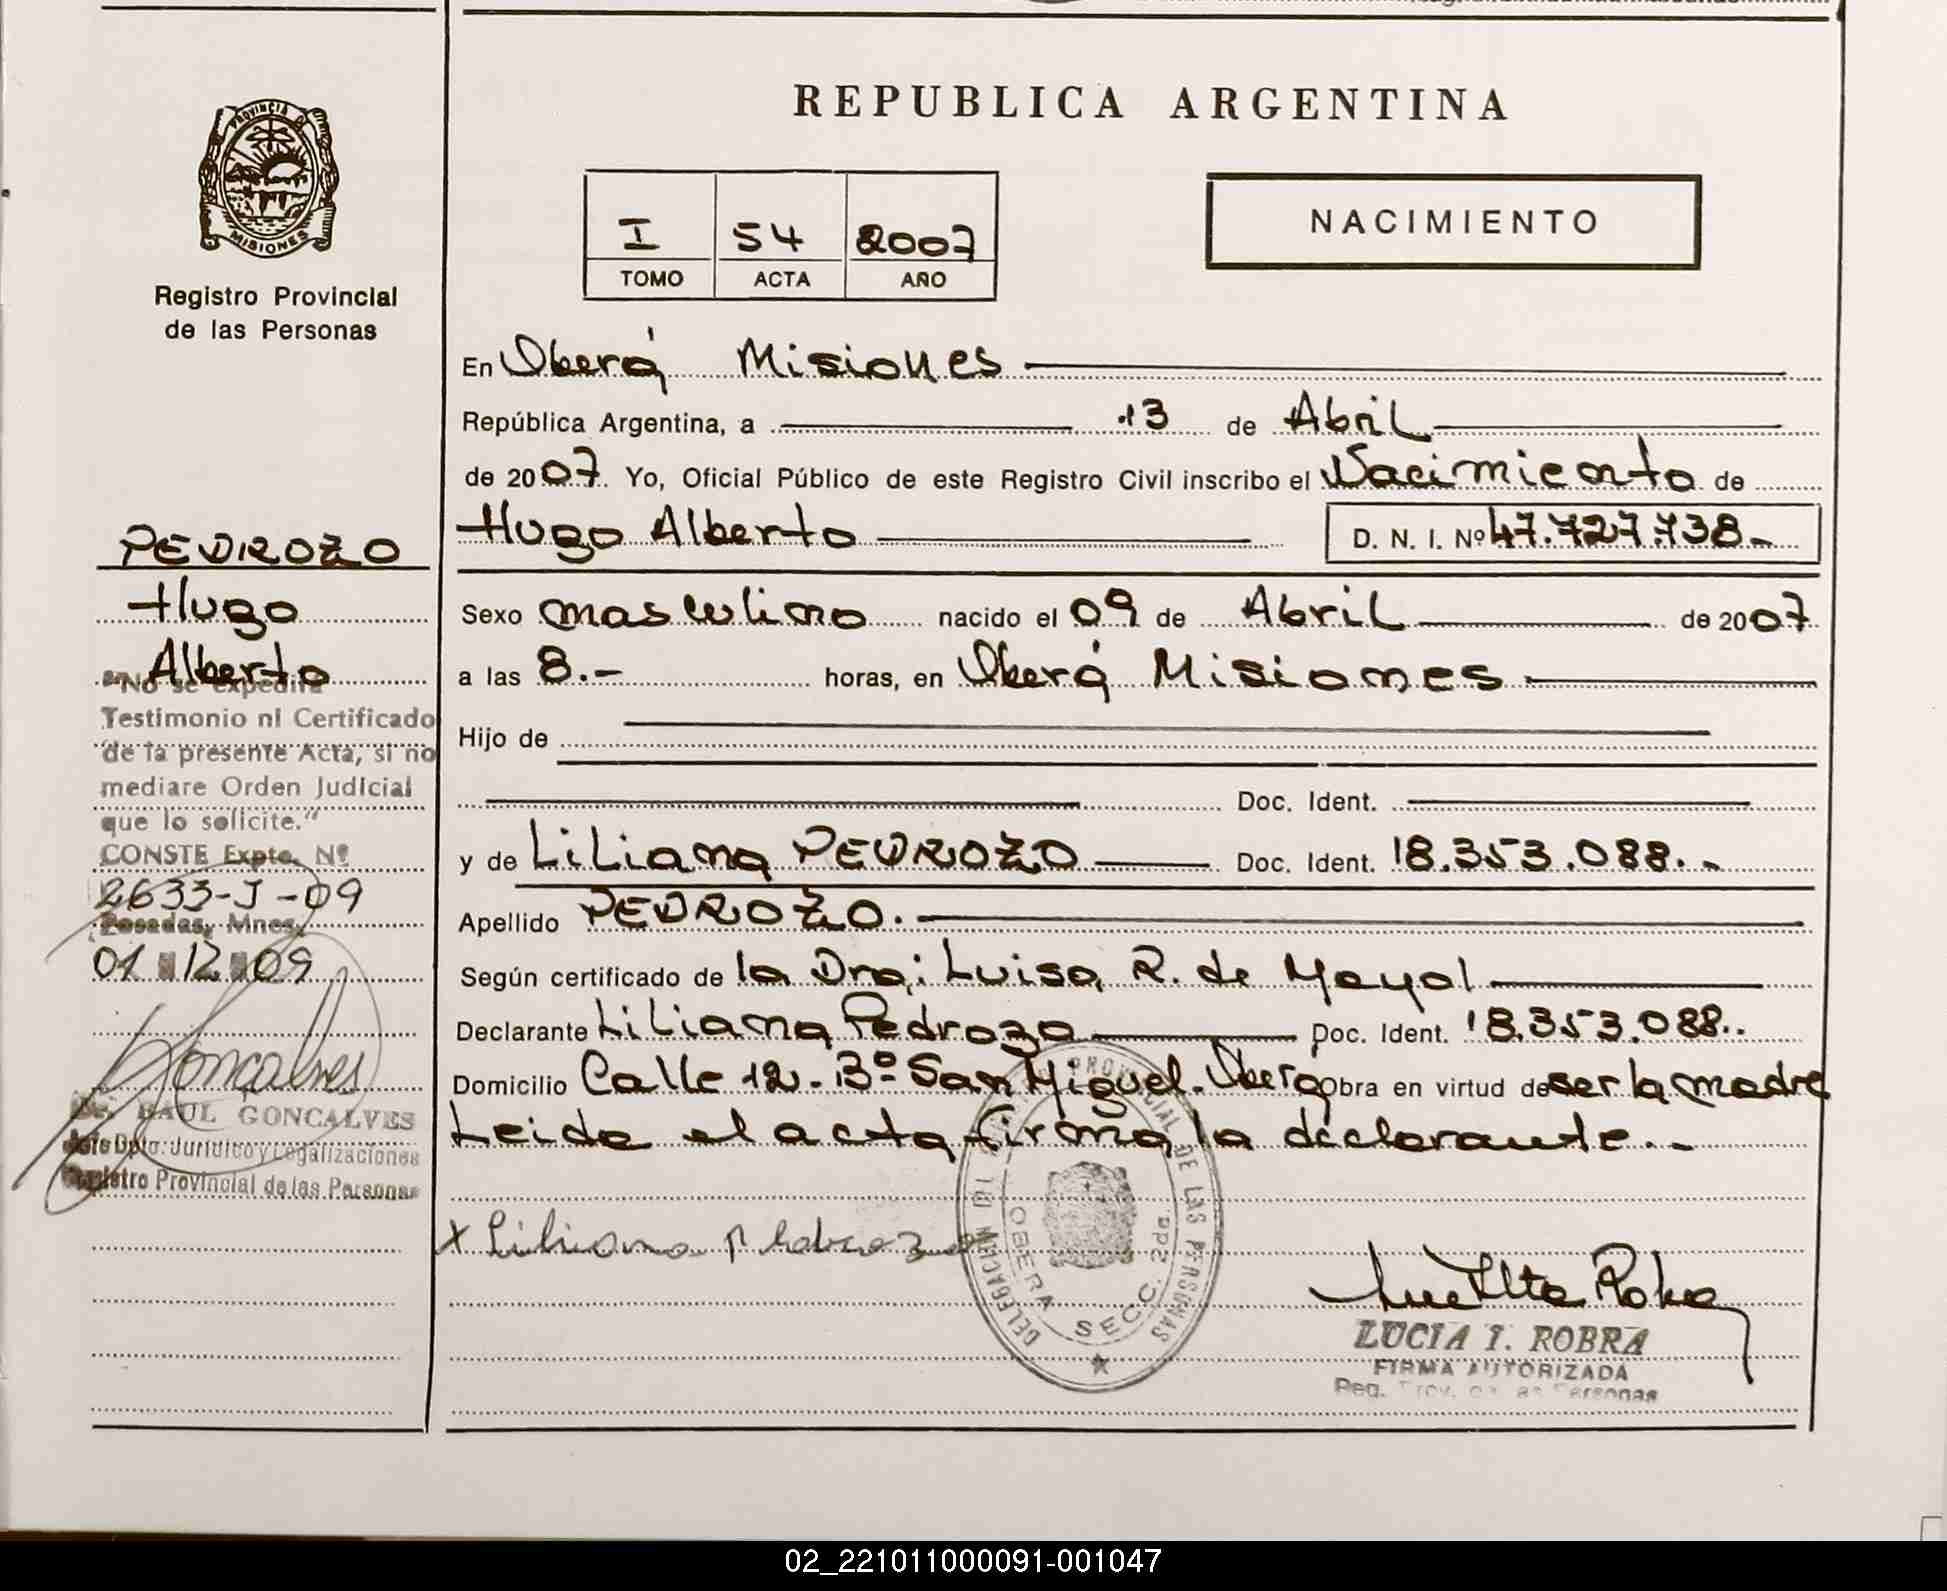 REPUBLICA ARGENTINA
PROVINCIA DE
MISIONES
Registro Provincial
de las Personas
I 54 2007
TOMO ACTA AÑO
NACIMIENTO
En Oberá Misiones
República Argentina, a 13 de Abril
de 2007. Yo, Oficial Público de este Registro Civil inscribo el Nacimiento de
Hugo Alberto D. N. I. Nº 47.727.738.-
Sexo masculino nacido el 09 de Abril de 2007
a las 8.- horas, en Oberá Misiones
Hijo de
Doc. Ident.
y de Liliana PEDROZO Doc. Ident. 18.353.088.-
Apellido PEDROZO.
Según certificado de la Dra.: Luisa R. de Mayol
Declarante Liliana Pedrozo Doc. Ident. 18.353.088..
Domicilio Calle 12 - Bº San Miguel. Oberá Obra en virtud de ser la madre
Leida el acta firma la declarante.-
x Liliana Pedrozo
DELEGACION DEL PROVINCIAL DE LAS PERSONAS
OBERA SECC. 2da.
LUCIA I. ROBRA
FIRMA AUTORIZADA
Reg. Prov. de las Personas
PEDROZO
Hugo
Alberto
"No se expedirá
Testimonio ni Certificado
de la presente Acta, si no
mediare Orden Judicial
que lo solicite."
CONSTE Expte. Nº
2633-J-09
Posadas, Mnes.
01 12 09
Goncalves
Dr. RAUL GONCALVES
Jefe Dpto. Jurídico y Legalizaciones
Registro Provincial de las Personas
02_221011000091-001047